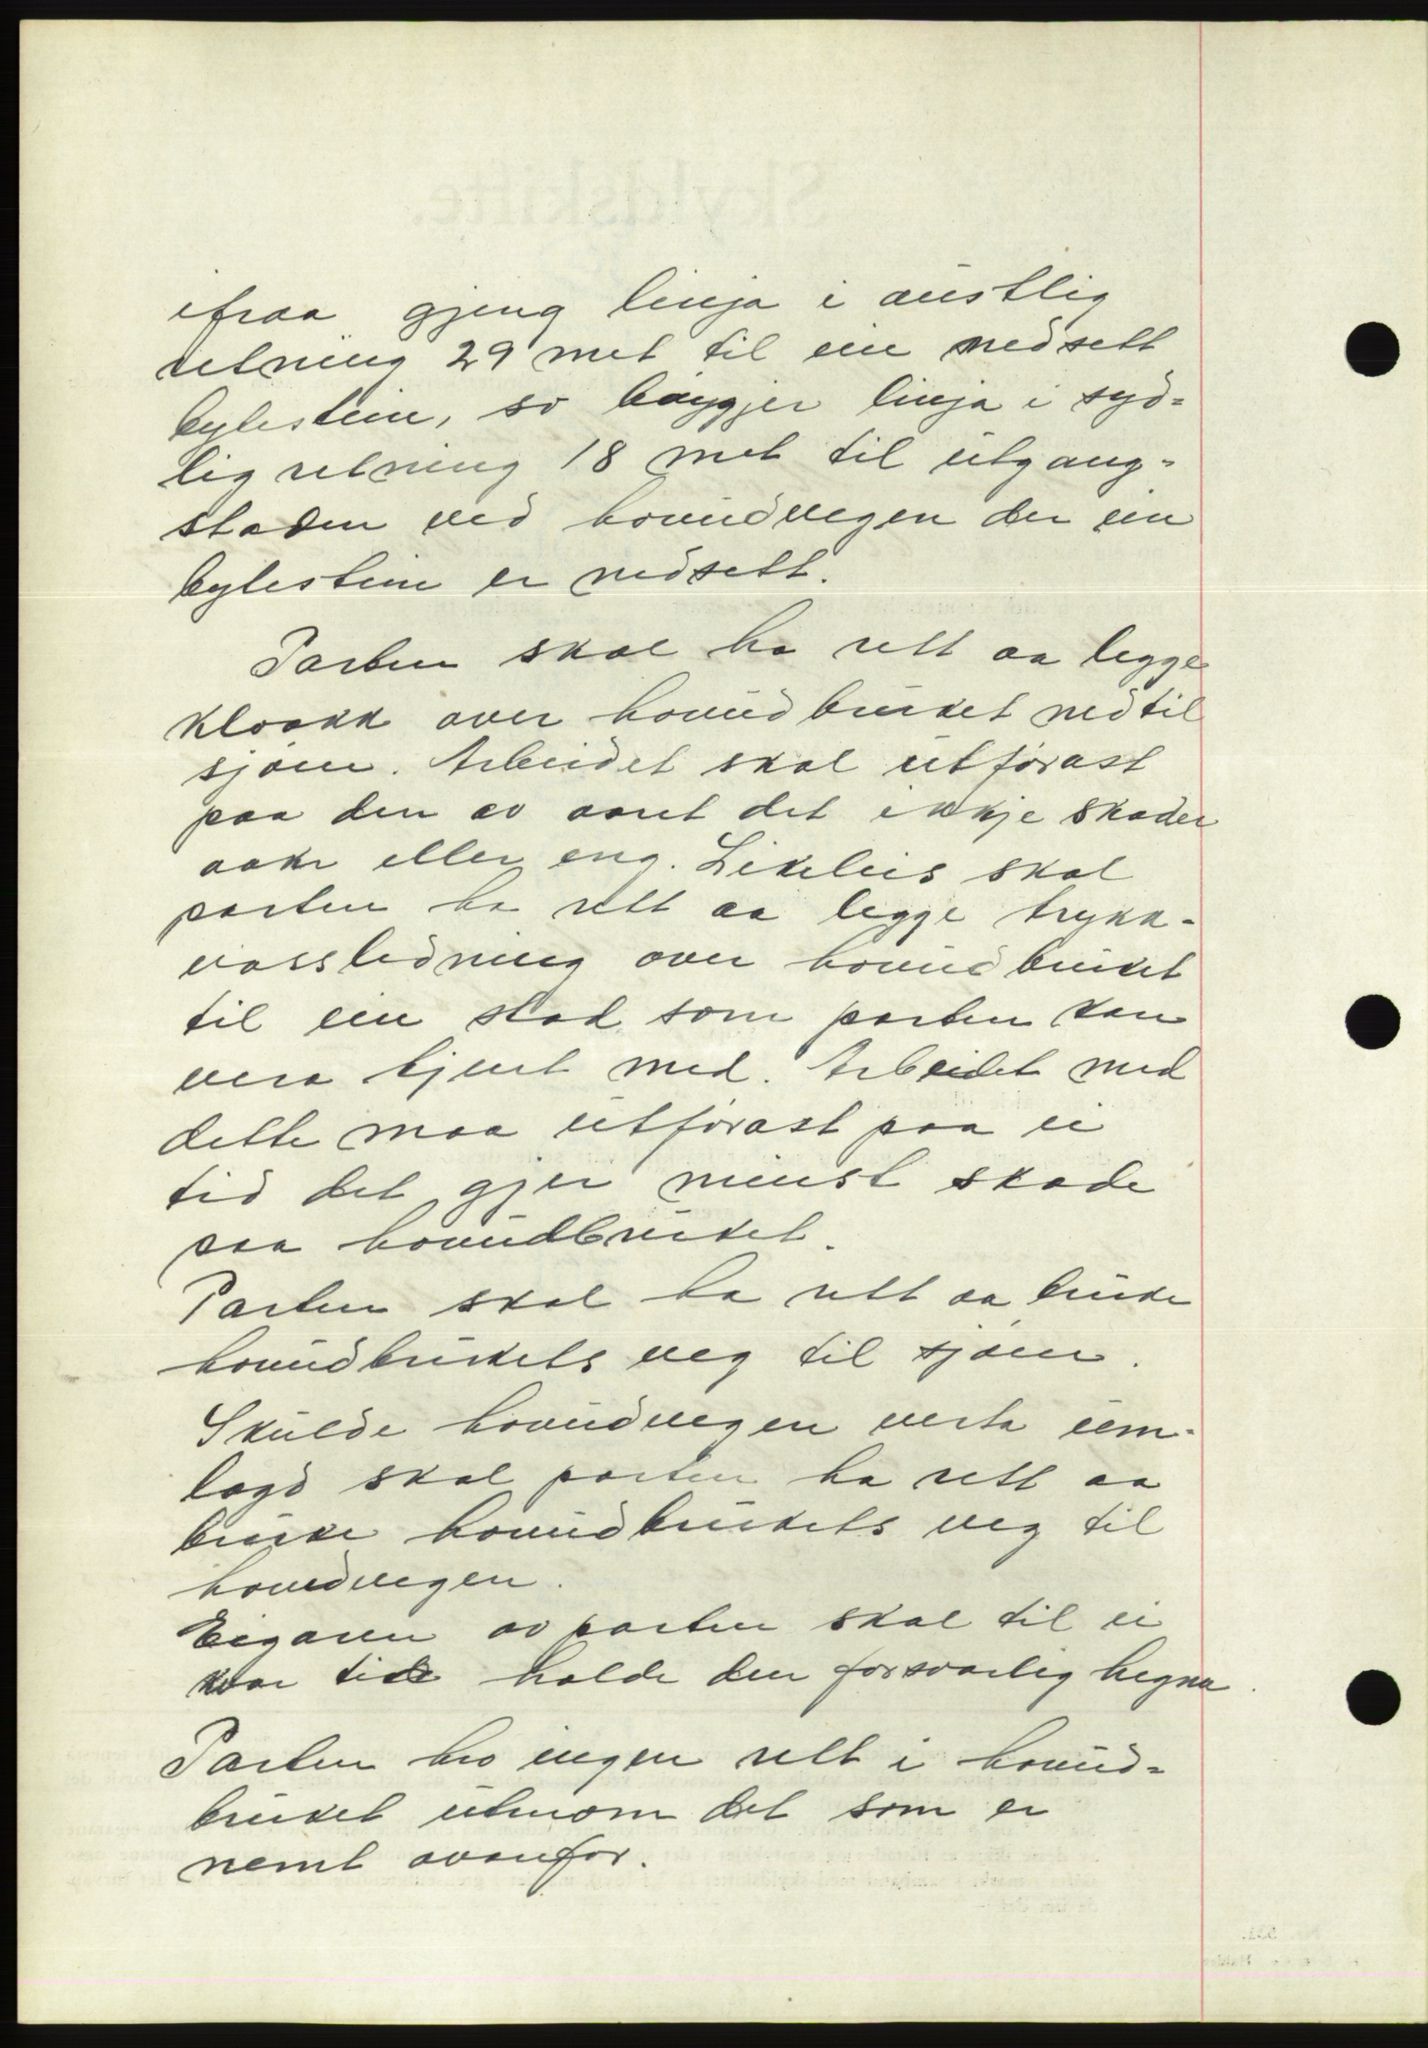 ifraa gjeng linja i austlig
retning 29 met til ein nedsett
bylestein, so bøygjer linja i syd-
lig retning 18 met til utgang-
staden ved hovudvegen der ein
bylestein er nedsett.
Parten skal ha rett aa legge
kloakk over hovudbruket ned til
sjøen. Arbeidet skal utförast
paa den av aaret det ikkje skader
aaker eller eng. Likeleis skal
parten ha rett aa legge trykk-
vassledning over hovudbruket
til ein stad som parten kan
vera tjent med. Arbeidet med
dette maa utförast paa ei
tid det gjer minst skade
paa hovudbruket.
Parten skal ha rett aa bruke
hovudbrukets veg til sjøen.
Skulde hovudvegen verta um-
lagd skal parten ha rett aa
bruke hovudbrukets veg til
hovudvegen.
Eigaren av parten skal til ei
kvar tid halde den forsvarlig hegna.
Parten hev ingen rett i hovud-
bruket utanom det som er
nemt ovanfor.